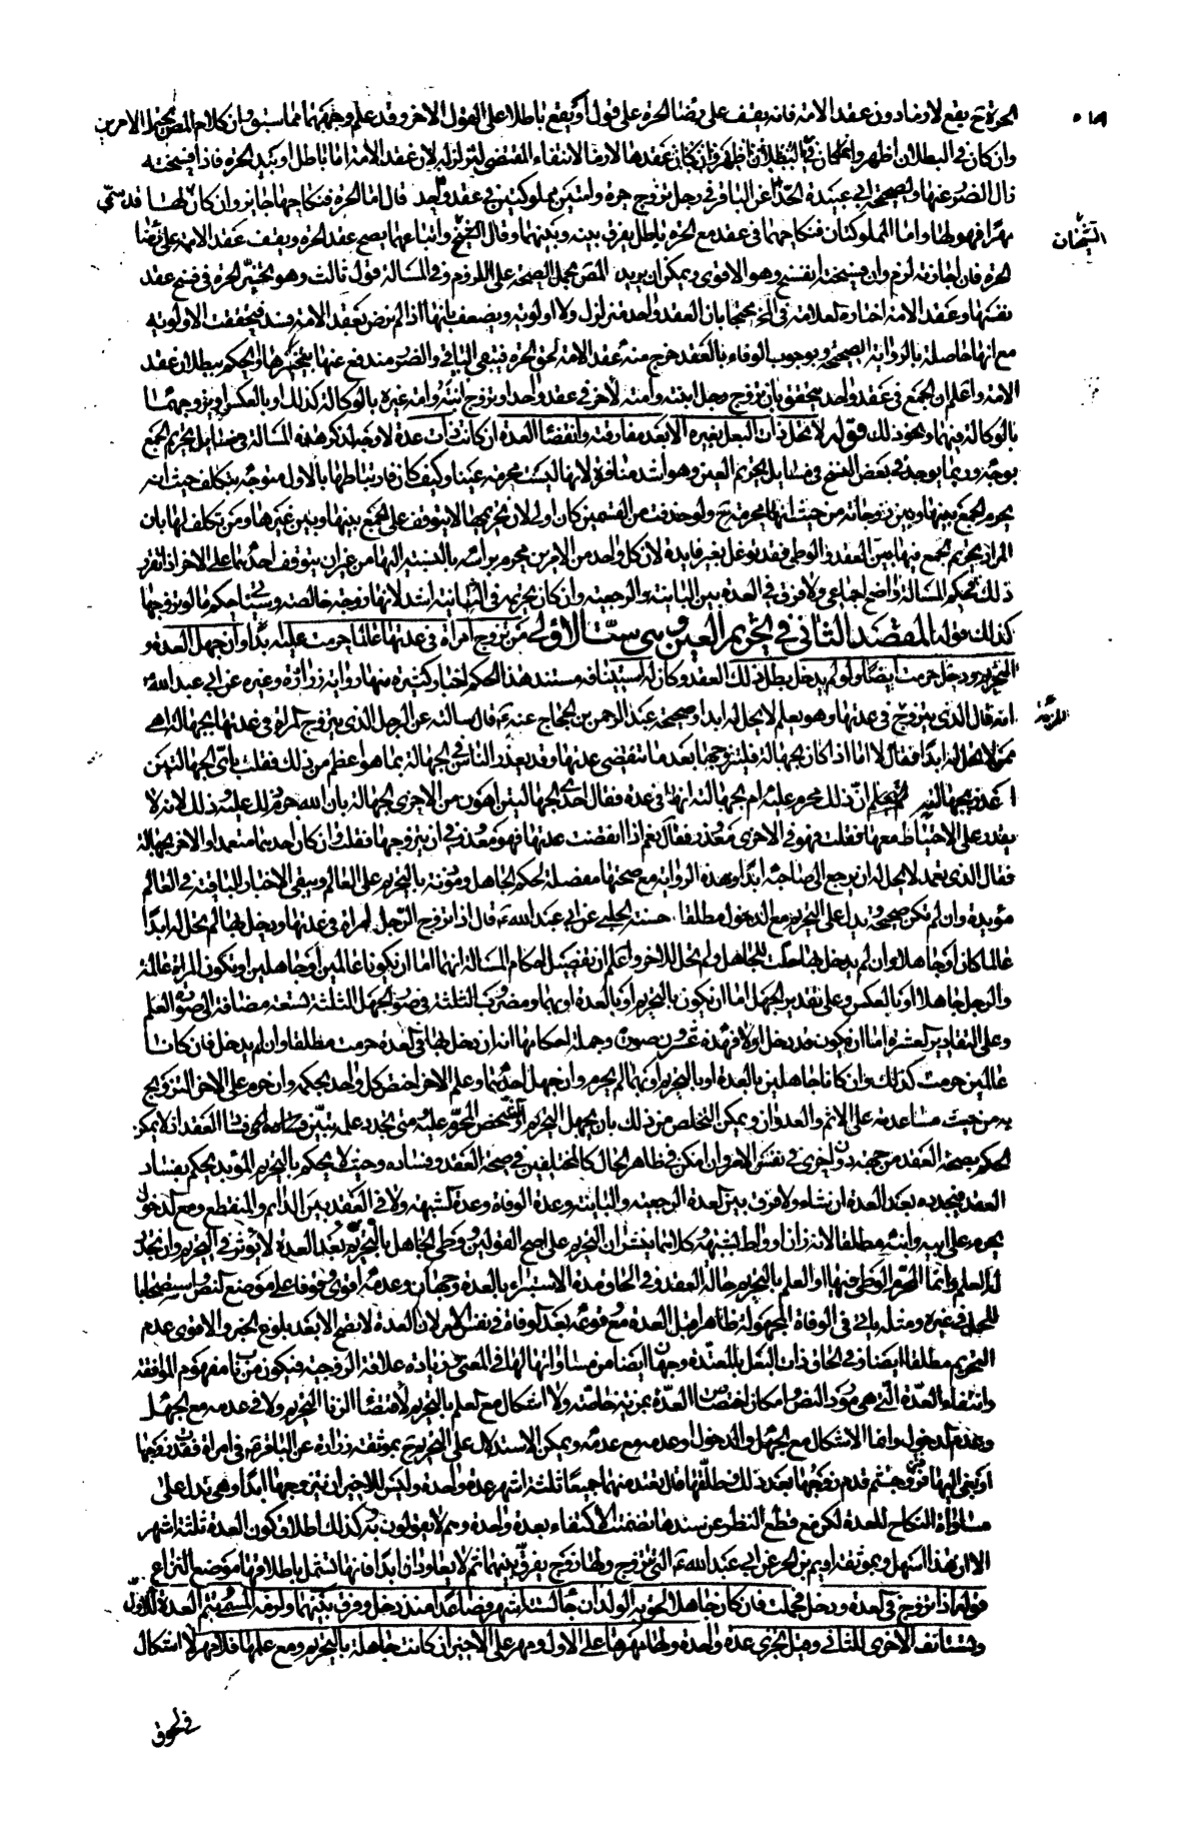 الحرة ح يقع لازما دون عقد الامة فانه يقف على رضا الحرة على قول او يقع باطلا على القول الاخر وقد علم وجههما مما سبق وان كلام المص يحتمل الامرين
وان كان في البطلان اظهر وانما كان في البطلان اظهر وان كان عقدها لازما لانتفاء المقتضى لتزلزله لان عقد الامة اما باطل او بيد الحرة فاذا فسخته
زال الضرر عنها ولصحيحة ابي عبيدة الحذاء عن الباقر في رجل تزوج حرة وامتين مملوكتين في عقد واحد قال اما الحرة فنكاحها جايز وان كان لها قد سمى
مهرا فهو لها واما المملوكتان فنكاحهما في عقد مع الحرة باطل يفرق بينه وبينهما وقال الشيخ واتباعهما يصح عقد الحرة ويقف عقد الامة على رضا
الشيخان
الحرة فان اجازته لزم وان فسخته انفسخ وهو الاقوى ويمكن ان يريد المص بحمل الصحة على اللزوم وفي المسالة قول ثالث وهو تخيير الحرة في فسخ عقد
نفسها وعقد الامة اختاره العلامة في المخ محتجا بان العقد واحد متزلزل ولا اولوية ويضعف بانها اذا لم ترض بعقد الامة فسد فتحققت الاولوية
مع انها حاصلة بالرواية الصحيحة وبوجوب الوفاء بالعقد خرج منه عقد الامة لحق الحرة فيبقى الباقي والضرر مندفع عنها بتخييرها والحكم ببطلان عقد
الامة واعلم ان الجمع في عقد واحد يتحقق بان يزوج رجل ابنته وامته لاخر في عقد واحد او يزوج ابنته وامة غيره بالوكالة كذلك او بالعكس او يزوجهما
بالوكالة فيهما ونحو ذلك قوله لا تحل ذات البعل لغيره الا بعد مفارقته وانقضاء العدة ان كانت ذات عدة لا وجه لذكر هذه المسالة في مسايل تحريم الجمع
بوجه وربما يوجد في بعض النسخ في مسايل تحريم العين وهو اشد منافرة لانها ليست محرمة عينا وكيف كان فارتباطها بالاول متوجه بتكلف حيث انه
يحرم الجمع بينها وبين زوجاته من حيث انها محرمة ح ولو حذفت من القسمين كان اولى لان تحريمها لا يتوقف على الجمع بينها وبين غيرها ومن تكلف لها بان
المراد تحريم الجمع فيها بين العقد والوطي فقد توغل بغير فايدة لان كل واحد من الامرين محرم براسه بالنسبة اليها من غير ان يتوقف احدهما على الاخر اذا تقرر
ذلك فحكم المسالة واضح اجماعي ولا فرق في العدة بين الباينة والرجعية وان كان تحريمه في الثانية اشد لانها زوجة خالصة وسياتي حكم ما لو تزوجها
كذلك قوله المقصد الثاني في تحريم العين وهي ست الاولى من تزوج امراة في عدتها عالما حرمت عليه ابدا وان جهل العدة و
التحريم ودخل حرمت ايضا ولو لم يدخل بطل ذلك العقد وكان له استينافه مستند هذا الحكم اخبار كثيرة منها رواية زرارة وغيره عن ابي عبد الله
انه قال الذي يتزوج في عدتها وهو يعلم لا يحل له ابدا وصحيحة عبد الرحمن بن الحجاج عنه ع قال سالته عن الرجل الذي يتزوج المراة في عدتها بجهالة اهي
ممن لا تحل له ابدا فقال لا اما اذا كان بجهالة فليتزوجها بعد ما تنقضي عدتها وقد يعذر الناس في الجهالة بما هو اعظم من ذلك فقلت باي الجهالتين
اعذر بجهالته ان يعلم ان ذلك محرم عليه ام بجهالته انها في عدة فقال احدى الجهالتين اهون من الاخرى الجهالة بان الله حرم ذلك عليه وذلك لانه لا
يقدر على الاحتياط معها فقلت فهو في الاخرى معذور فقال نعم اذا انقضت عدتها فهو معذور في ان يتزوجها فقلت وان كان احدهما متعمدا والاخر بجهالة
فقال الذي تعمد لا يحل له ان يرجع الى صاحبه ابدا وهذه الرواية مع صحتها مفصلة لحكم الجاهل ومؤذنة بالتحريم على العالم ويبقى الاخبار الباقية في العالم
مؤيدة وان لم تكن صحيحة ويدل على التحريم مع الدخول مطلقا حسنة الحلبي عن ابي عبد الله ع قال اذا تزوج الرجل المراة في عدتها ودخل بها لم تحل له ابدا
عالما كان او جاهلا وان لم يدخل بها حلت للجاهل ولم تحل للاخر واعلم ان تفصيل احكام المسالة انهما اما ان يكونا عالمين او جاهلين او يكون المراة عالمة
والرجل جاهلا او بالعكس وعلى تقدير الجهل اما ان يكون بالتحريم او بالعدة او بهما ومضروب الثلثة في صور الجهل الثلثة تسعة مضافة الى صورة العلم
وعلى التقادير العشرة اما ان يكون قد دخل او لا فهذه عشرون صورة وجملة احكامها انه ان دخل بها في العدة حرمت مطلقا وان لم يدخل فان كانا
عالمين حرمت كذلك وان كانا جاهلين بالعدة او بالتحريم او بهما لم يحرم وان جهل احدهما وعلم الاخر اختص كل واحد بحكمه وان حرم على الاخر التزويج
به من حيث مساعدته على الاثم والعدوان ويمكن التخلص من ذلك بان يجهل التحريم او شخص المحرم عليه ومتى تجدد علمه تبين فساد العقد اذ لا يمكن
الحكم بصحة العقد من جهة دون اخرى في نفس الامر وان امكن في ظاهر الحال كالمختلفين في صحة العقد وفساده وحيث لا يحكم بالتحريم المؤبد يحكم بفساد
العقد فيجدده بعد العدة ان شاء ولا فرق بين العدة الرجعية والباينة وعدة الوفاة وعدة الشبهة ولا في العقد بين الدايم والمنقطع ومع الدخول
يحرم على ابيه وابنه مطلقا لانه زان او واطئ لشبهة وكلاهما ينشران التحريم على اصح القولين ووطي الجاهل بالتحريم بعد العدة لا يؤثر في التحريم وان تجدد
له العلم وانما المحرم الوطي فيها او العلم بالتحريم حالة العقد وفي الحاق مدة الاستبراء بالعدة وجهان وعدمه اقوى وقوفا على موضع النص واستصحابا
للحل في غيره ومثله ياتي في الوفاة المجهولة ظاهرا قبل العدة مع وقوعه بعد الوفاة في نفس الامر لان العدة لا تقع الا بعد بلوغ الخبر والاقوى عدم
التحريم مطلقا ايضا وفي الحاق ذات البعل بالمعتدة وجهان ايضا من مساواتها لها في المعنى وزيادة علاقة الزوجية فيكون من باب مفهوم الموافقة
وانتفاء العدة التي هي مورد النص وامكان اختصاص العدة بمزية خاصة ولا اشكال مع العلم بالتحريم لاقتضاء الزنا التحريم ولا في عدمه مع الجهل
وعدم الدخول وانما الاشكال مع الجهل والدخول او عدمه مع عدمه ويمكن الاستدلال على التحريم ح بموثقة زرارة عن الباقر ع في امراة فقدت زوجها
او نعي اليها فتزوجت ثم قدم زوجها بعد ذلك فطلقها قال تعتد منهما جميعا ثلثة اشهر عدة واحدة وليس للاخير ان يتزوجها ابدا وهي تدل على
مساواة النكاح للعدة لكن مع قطع النظر عن سندها تضمنت الاكتفاء بعدة واحدة وهم لا يقولون به وكذلك اطلاق كون العدة ثلثة اشهر
الا ان هذا اسهل وبموثقة اديم بن الحر عن ابي عبد الله ع التي تتزوج ولها زوج يفرق بينهما ثم لا يتعاودان ابدا فانها تشمل باطلاقها موضع النزاع
قوله اذا تزوج في العدة ودخل فحملت فان كان جاهلا لحق به الولد ان جاء لستة اشهر فصاعدا منذ دخل وفرق بينهما ولزمه المسمى وتتم العدة للاول
وتستانف الاخرى للثاني وقيل تجزي عدة واحدة ولها مهرها على الاول ومهر على الاخير ان كانت جاهلة بالتحريم ومع علمها فلا مهر لا اشكال
في لحوق